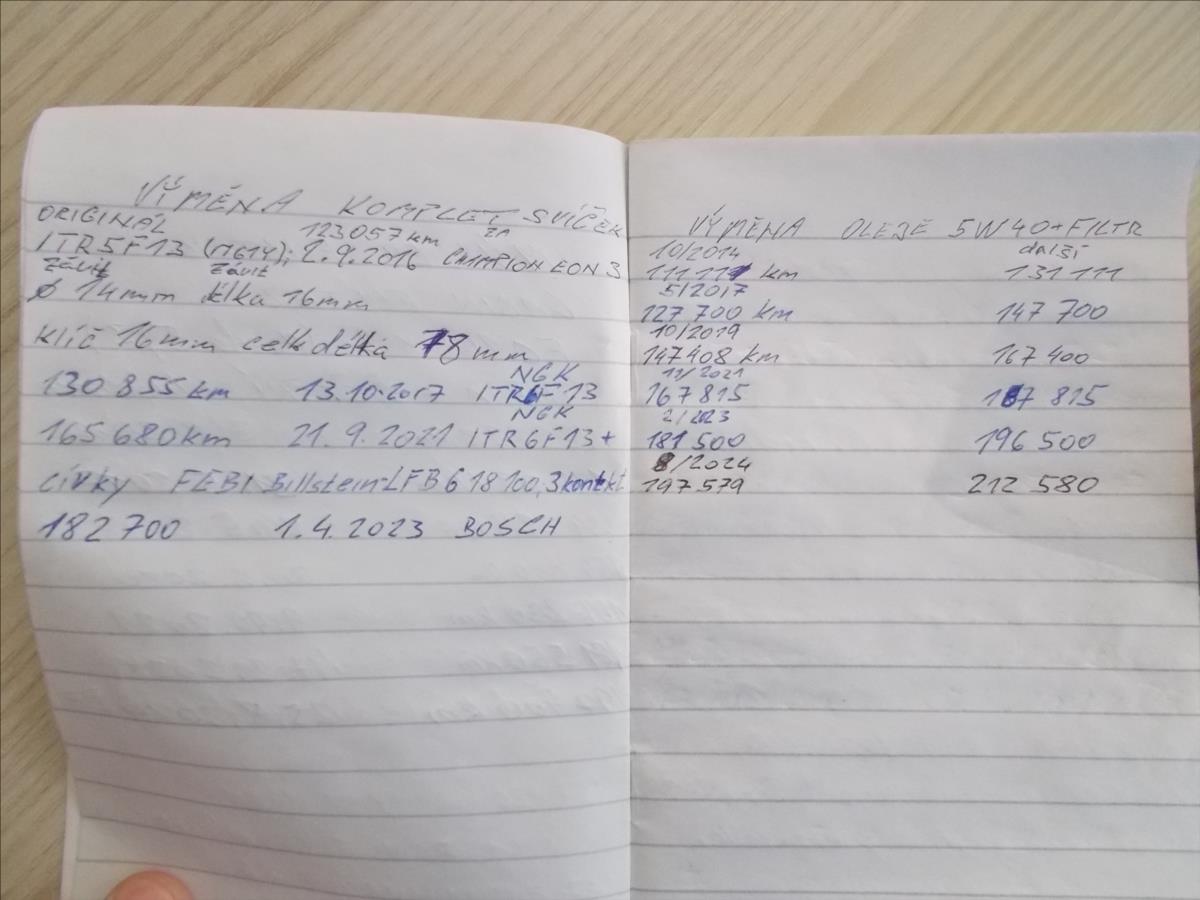 VÝMĚNA KOMPLET SVÍČEK
ORIGINÁL 123 057 km ZA
ITR5F13 (M614); 2.9.2016 CHAMPION EON 3
závit závit
ø 14mm délka 16mm
KLÍČ 16mm celk délka 78 mm
NGK
130 855 km 13.10.2017 ITR6F13
NGK
165 680 km 21.9.2021 ITR6F13 +
cívky FEBI Billstein-LFB 6 18100, 3 kontakt
182 700 1.4.2023 BOSCH
VÝMĚNA OLEJE 5W40+FILTR
10/2014 další
111 111 km 131 111
5/2017
127 700 km 147 700
10/2019
147 408 km 167 400
11/2021
167 815 187 815
2/2023
181 500 196 500
8/2024
197 579 212 580